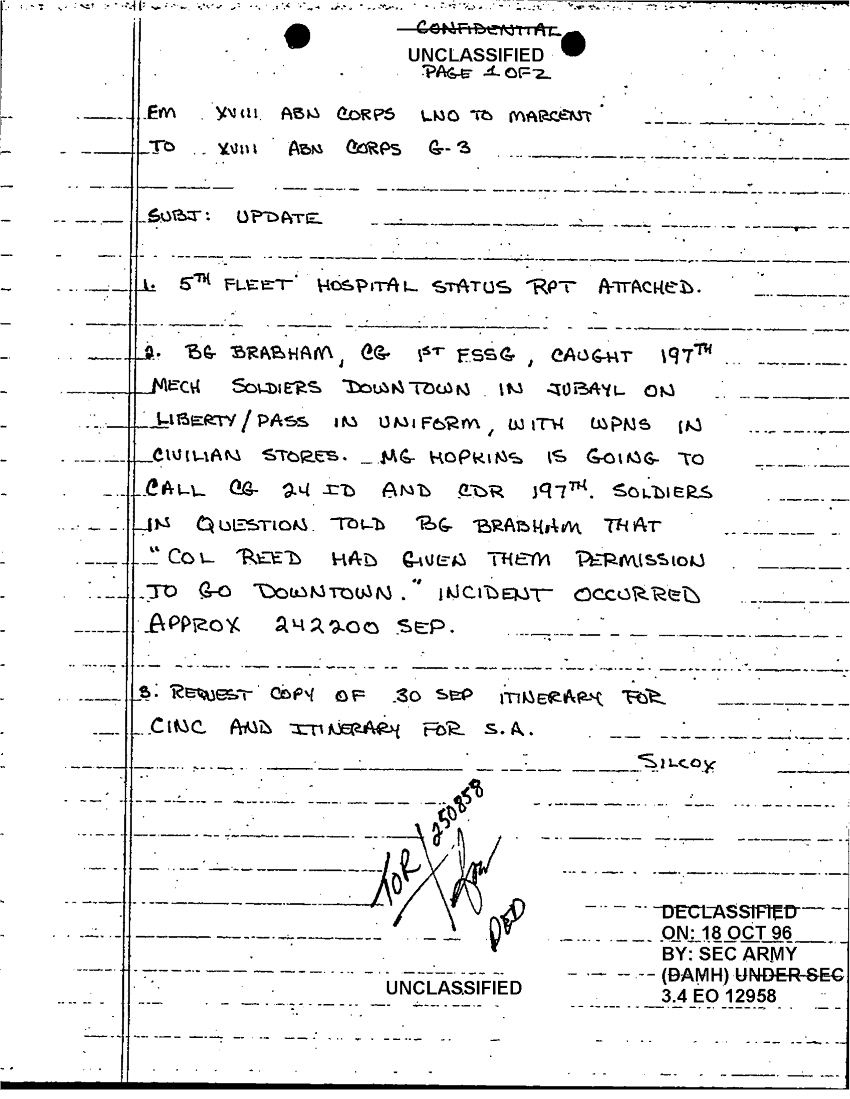 CONFIDENTIAL
UNCLASSIFIED
PAGE 1 OF 2
FM XVIII ABN CORPS LNO TO MARCENT
TO XVIII ABN CORPS G-3
SUBJ: UPDATE
1. 5TH FLEET HOSPITAL STATUS RPT ATTACHED.
2. BG BRABHAM, CG 1ST FSSG, CAUGHT 197TH
MECH SOLDIERS DOWNTOWN IN JUBAYL ON
LIBERTY/PASS IN UNIFORM, WITH WPNS IN
CIVILIAN STORES. MG HOPKINS IS GOING TO
CALL CG 24 ID AND CDR 197TH. SOLDIERS
IN QUESTION TOLD BG BRABHAM THAT
"COL REED HAD GIVEN THEM PERMISSION
TO GO DOWNTOWN." INCIDENT OCCURRED
APPROX 242200 SEP.
3. REQUEST COPY OF 30 SEP ITINERARY FOR
CINC AND ITINERARY FOR S.A.
SILCOX
TOR 250858
DECLASSIFIED
ON: 18 OCT 96
BY: SEC ARMY
(DAMH) UNDER SEC
3.4 EO 12958
UNCLASSIFIED